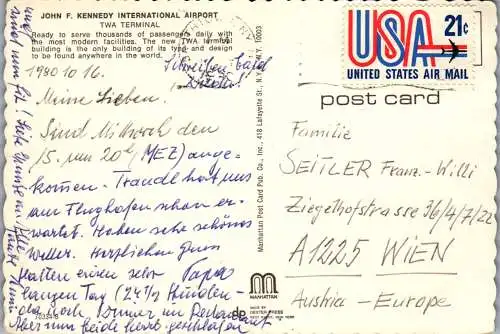 JOHN F. KENNEDY INTERNATIONAL AIRPORT
TWA TERMINAL
Ready to serve thousands of passengers daily with
the most modern facilities. The new TWA terminal
building is the only building of its type and design
to be found anywhere in the world.
1980 10 16.
Schreiben bald
wieder!
Meine Lieben.
Sind Mittwoch den
15. um 20h (MEZ) ange-
kommen. Traudl hat uns
am Flughafen schon er-
wartet. Haben sehr schönes
Wetter. Herzlichen Gruß
Papa
Hatten einen sehr
langen Tag (24 Stunden-
da noch immer im
Haben wir beide
Manhattan Post Card Pub. Co., Inc., 418 Lafayette St., N.Y., N.Y. 10003
MANHATTAN
MADE BY
DEXTER PRESS
WEST NYACK, NEW YORK
USA 21¢
UNITED STATES AIR MAIL
post card
Familie
SEITLER Franz-Willi
Ziegelhofstrasse 36/4/7/22
A1225 WIEN
Austria - Europe